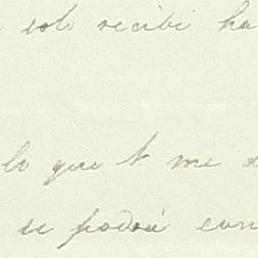 solo recibi ha
lo que t me d
se podrá con